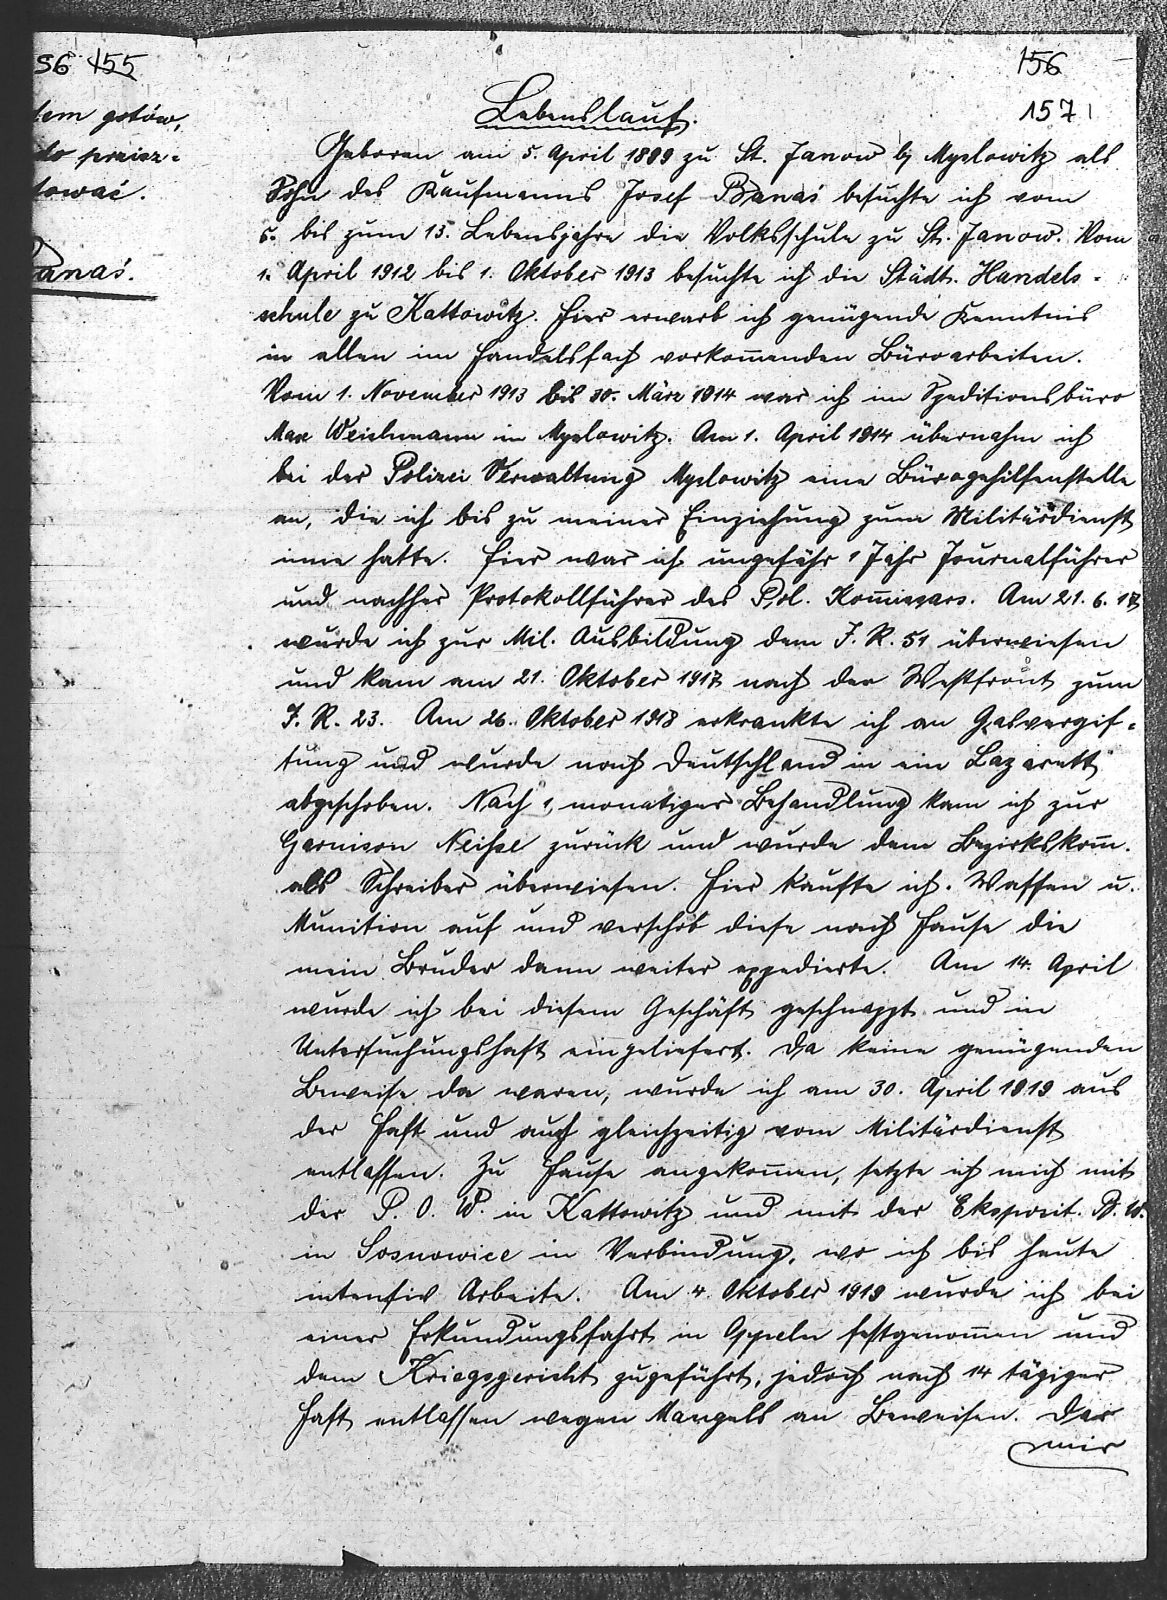 56 155
dem gotów,
do przie-
tować.
Banaś.
156
157
Lebenslauf.
Geboren am 5. April 1899 zu St. Janow b/ Myslowitz als
Sohn des Kaufmanns Josef Banaś besuchte ich vom
6. bis zum 13. Lebensjahre die Volksschule zu St. Janow. Vom
1. April 1912 bis 1. Oktober 1913 besuchte ich die Städt. Handels-
schule zu Kattowitz. Hier erwarb ich genügende Kenntnis
in allen im Handelsfach vorkom̅enden Büroarbeiten.
Vom 1. November 1913 bis 30. März 1914 war ich im Speditionsbüro
Max Weichmann in Myslowitz. Am 1. April 1914 übernahm ich
bei der Polizei Verwaltung Myslowitz eine Bürogehilfenstelle
an, die ich bis zu meiner Einziehung zum Militärdienst
inne hatte. Hier war ich ungefähr 1 Jahr Journalführer
und nachher Protokollführer des Pol. Kom̅issars. Am 21. 6. 17
wurde ich zur Mil. Ausbildung dem J. R. 51 überwiesen
und kam am 21. Oktober 1917 nach der Westfront zum
J. R. 23. Am 26. Oktober 1918 erkrankte ich an Gasvergif-
tung und wurde nach Deutschland in ein Lazarett
abgeschoben. Nach 1 monatiger Behandlung kam ich zur
Garnison Neiße zurück und wurde dem Bezirkskom̅.
als Schreiber überwiesen. Hier kaufte ich Waffen u.
Munition auf und verschob diese nach Hause die
mein Bruder dann weiter expedierte. Am 14. April
wurde ich bei diesem Geschäft geschnappt und in
Untersuchungshaft eingeliefert. Da keine genügenden
Beweise da waren, wurde ich am 30. April 1919 aus
der Haft und auch gleichzeitig vom Militärdienst
entlassen. Zu Hause angekom̅en, setzte ich mich mit
der P. O. W. in Kattowitz und mit der Eksposit. B. W.
in Sosnowice in Verbindung, wo ich bis heute
intensiv Arbeite. Am 4. Oktober 1919 wurde ich bei
einer Erkundungsfahrt in Oppeln festgenom̅en und
dem Kriegsgericht zugeführt, jedoch nach 14 tägiger
Haft entlassen wegen Mangels an Beweisen. Der
mir